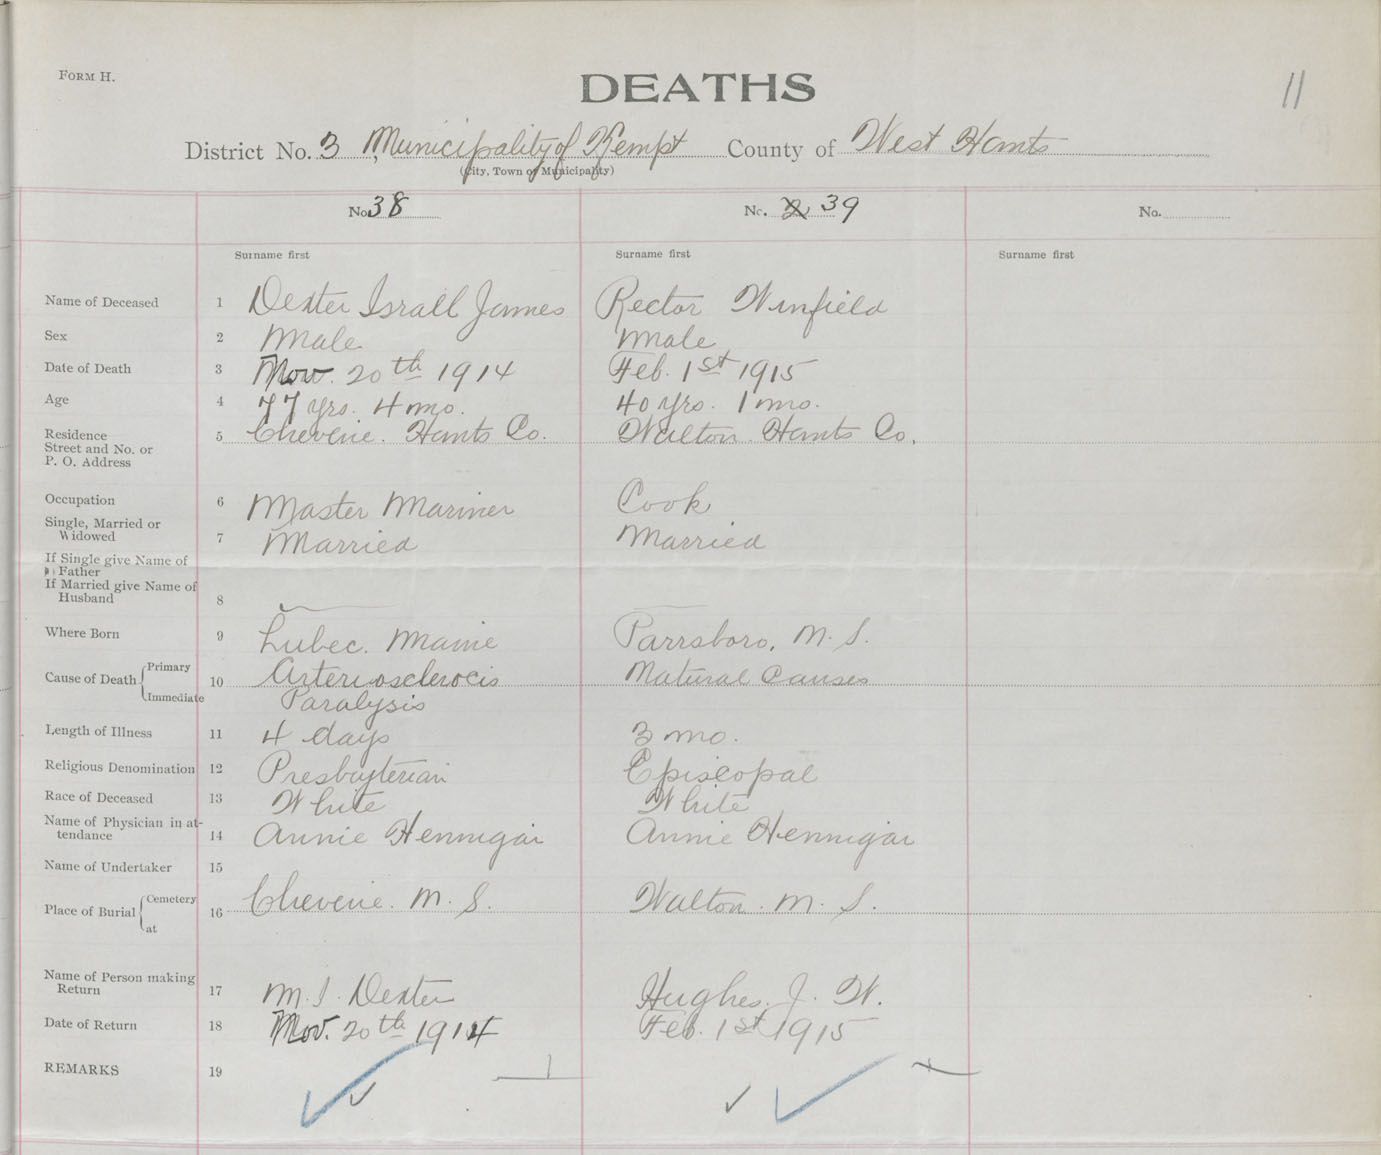 FORM H.
DEATHS
11
District No. 3, Municipality of Kempt County of West Hants
(City, Town or Municipality)
No. 38 No. 2 39 No.
Surname first Surname first Surname first
Name of Deceased 1 Dexter Israel James Rector Winfield
Sex 2 Male Male
Date of Death 3 Nov. 20th 1914 Feb. 1st 1915
Age 4 77 yrs. 4 mo. 40 yrs. 1 mo.
Residence 5 Cheverie. Hants Co. Walton. Hants Co.
Street and No. or
P. O. Address
Occupation 6 Master Mariner Cook
Single, Married or
Widowed 7 Married Married
If Single give Name of
Father
If Married give Name of
Husband 8
Where Born 9 Lubec. Maine Parrsboro, N. S.
Cause of Death Primary 10 Arteriosclerocis Natural Causes
Immediate Paralysis
Length of Illness 11 4 days 3 mo.
Religious Denomination 12 Presbyterian Episcopal
Race of Deceased 13 White White
Name of Physician in at-
tendance 14 Annie Hennigar Annie Hennigar
Name of Undertaker 15
Place of Burial Cemetery 16 Cheverie. N. S. Walton. N. S.
at
Name of Person making
Return 17 M. I. Dexter Hughes. J. W.
Date of Return 18 Nov. 20th 1914 Feb. 1st 1915
REMARKS 19